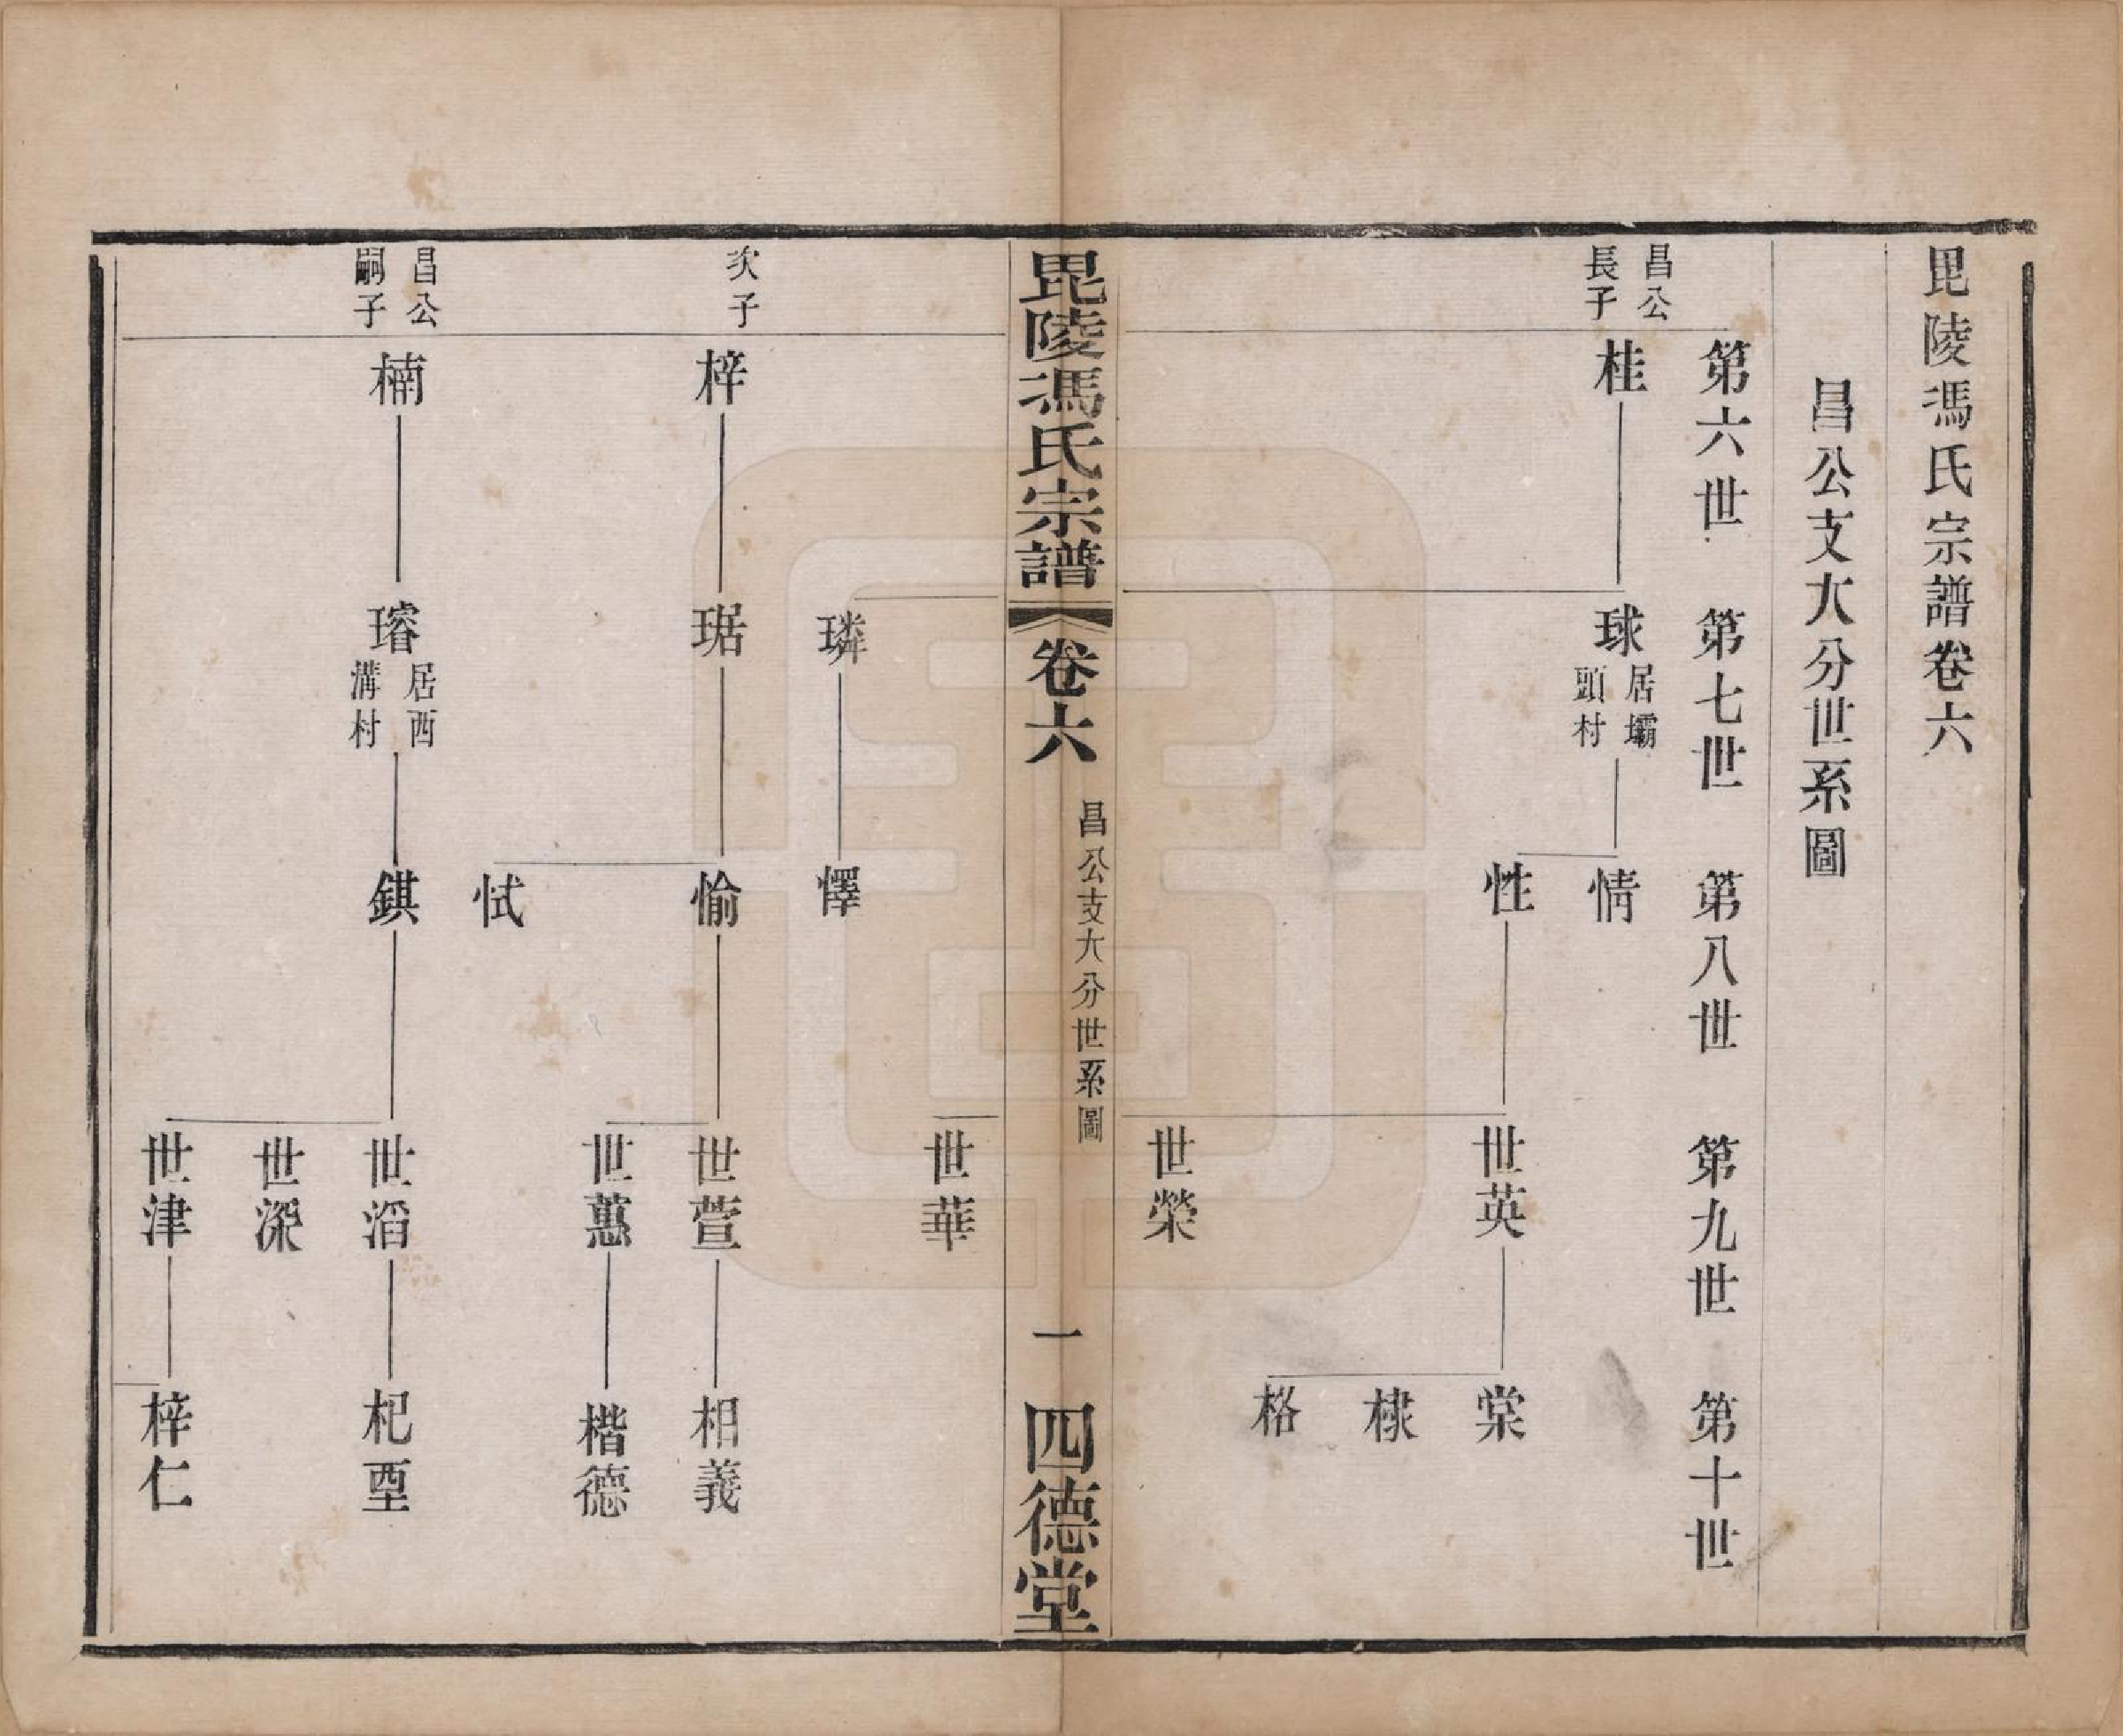 毘陵馮氏宗譜卷六
昌公支大分世系圖
第六世 第七世 第八世 第九世 第十世
昌公
長子
桂
球
居壩
頭村
情
性
世英
棠
棣
格
世榮
毘陵馮氏宗譜 卷六 昌公支大分世系圖 一 四德堂
世華
璘
懌
次子
梓
琚
愉
世萱
相義
世蕙
楷德
恜
昌公
嗣子
楠
璿
居西
溝村
錤
世滔
杞堊
世深
世津
梓仁